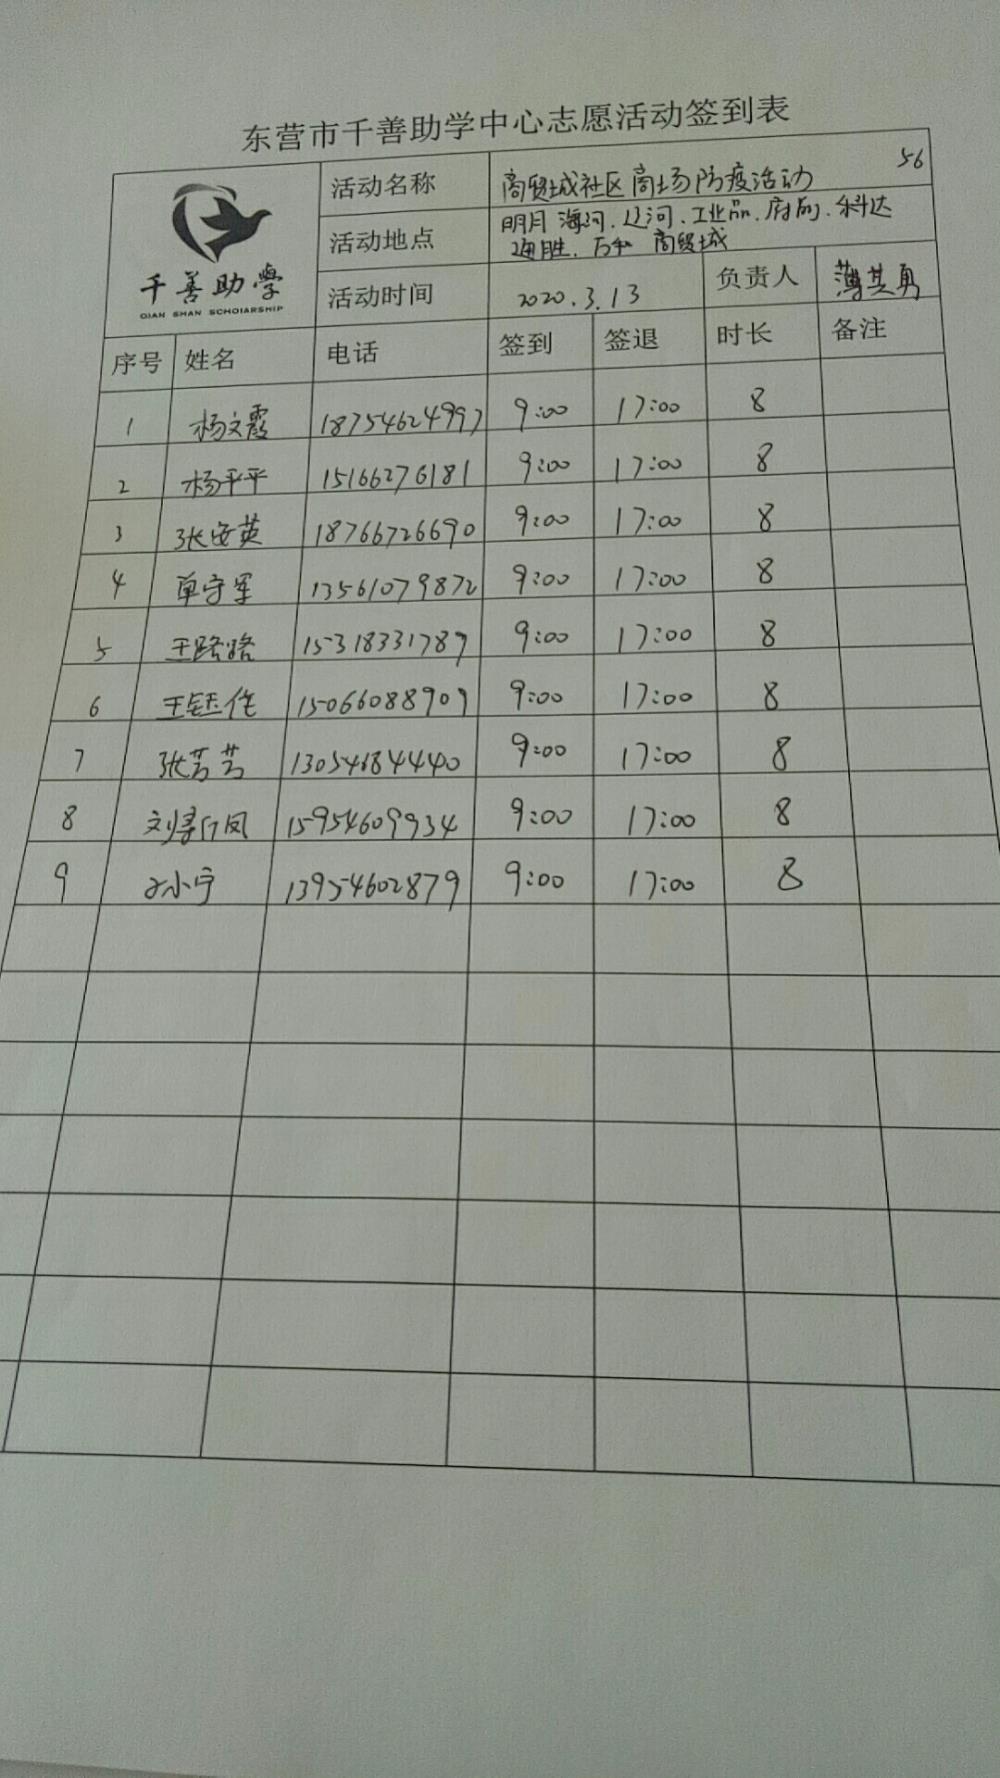 东营市千善助学中心志愿活动签到表
千善助學
QIAN SHAN SCHOLARSHIP
活动名称 商贸城社区商场防疫活动 56
活动地点 明月 海河、辽河、工业品、府前、科达
海胜、万和 商贸城
活动时间 2020.3.13 负责人 薄其勇
序号 姓名 电话 签到 签退 时长 备注
1 杨文霞 18754624997 9:00 17:00 8
2 杨平平 15166276181 9:00 17:00 8
3 张安英 18766726690 9:00 17:00 8
4 单守军 13561079872 9:00 17:00 8
5 王路路 15318331789 9:00 17:00 8
6 王钰佳 15066088909 9:00 17:00 8
7 张芳芳 13054684440 9:00 17:00 8
8 刘 凤 15954609934 9:00 17:00 8
9 孙小宁 13954602879 9:00 17:00 8